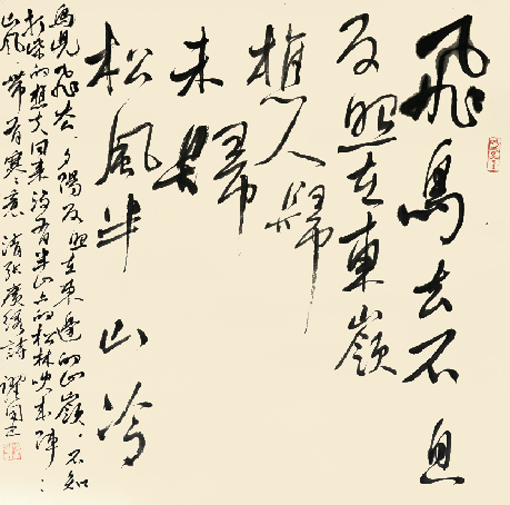 飛鳥去不息
反照在東嶺
樵人歸
未歸
松風半山冷
鳥兒飛去、夕陽反照在東邊的山嶺、不知
打柴的樵夫回來沒有半山上的松林吹來陣々
山風、帶有寒々意 清張廣詩